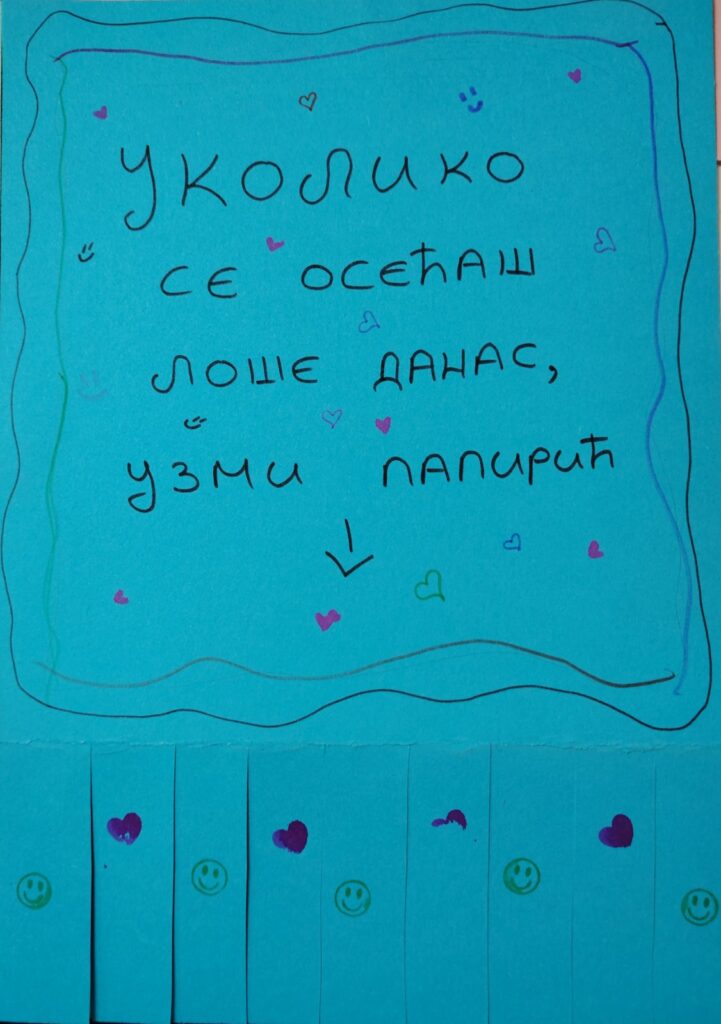 Уколико
се осећаш
лоше данас,
узми папирић